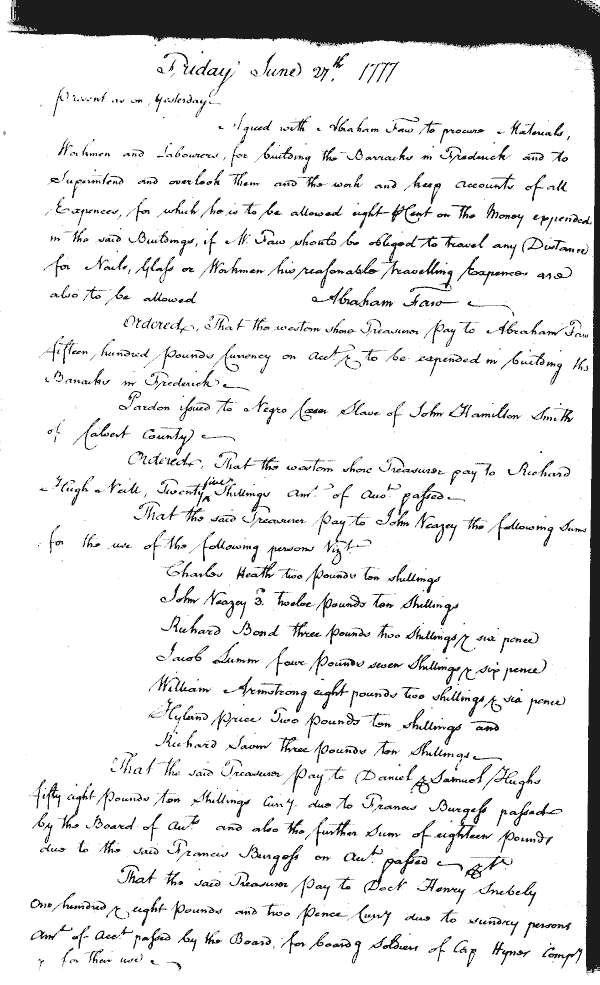 Friday June 27th. 1777
Present as on Yesterday
Agreed with Abraham Faw to procure Materials,
Workmen and Labourers, for building the Barracks in Frederick and to
Superintend and overlook them and the work and keep accounts of all
Expences, for which he is to be allowed eight P Cent on the Money expended
in the said Buildings, if Mr. Faw should be obliged to travel any Distance
for Nails, Glass or Workmen his reasonable travelling Expences are
also to be allowed Abraham Faw
Ordered, That the western shore Treasurer pay to Abraham Faw
fifteen hundred pounds Currency on Acct. &c to be expended in building the
Barracks in Frederick
Pardon issued to Negro Cæser Slave of John Hamilton Smith
of Calvert County
Ordered, That the western shore Treasurer pay to Richard
Hugh Neill, Twenty five Shillings amt. of Acct. passed
That the said Treasurer pay to John Veazey the following Sums
for the use of the following persons Vizt
Charles Heath two pounds ten shillings
John Veazey 3. twelve pounds ten Shillings
Richard Bond three pounds two Shillings & six pence
Jacob Lumm four pounds seven Shillings & six pence
William Armstrong eight pounds two shillings & six pence
Hyland price Two pounds ten shillings and
Richard Savin three pounds ten Shillings
That the said Treasurer pay to Daniel & Samuel Hughs
fifty eight pounds ten Shillings Curry. due to Francis Burgess passed
by the Board of Accts. and also the further Sum of eighteen pounds
due to the said Francis Burgess on Acct. passed
That the said Treasurer pay to Doct. Henry Snebely
one hundred & eight pounds and two pence Curry due to sundry persons
amt. of Acct passed by the Board, for boardg Soldiers of Cap Hyner Compy
for their use